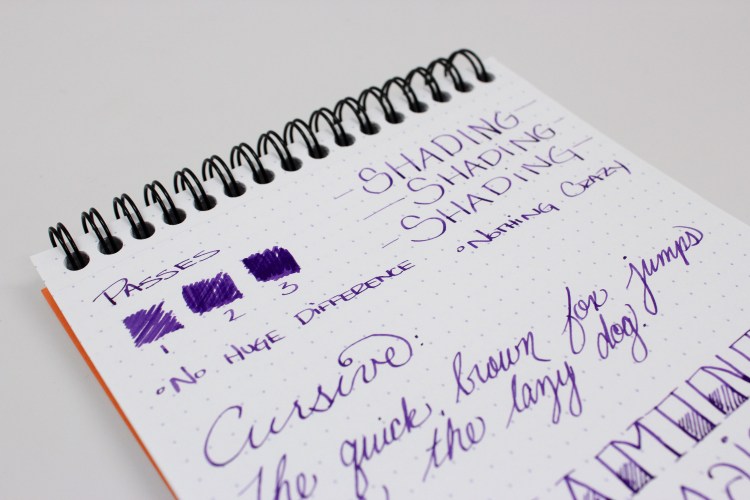 -SHADING-
-SHADING-
-SHADING-
°NOTHING CRAZY
PASSES
1 2 3
°NO HUGE DIFFERENCE
Cursive:
The quick brown fox jumps
the lazy dog.